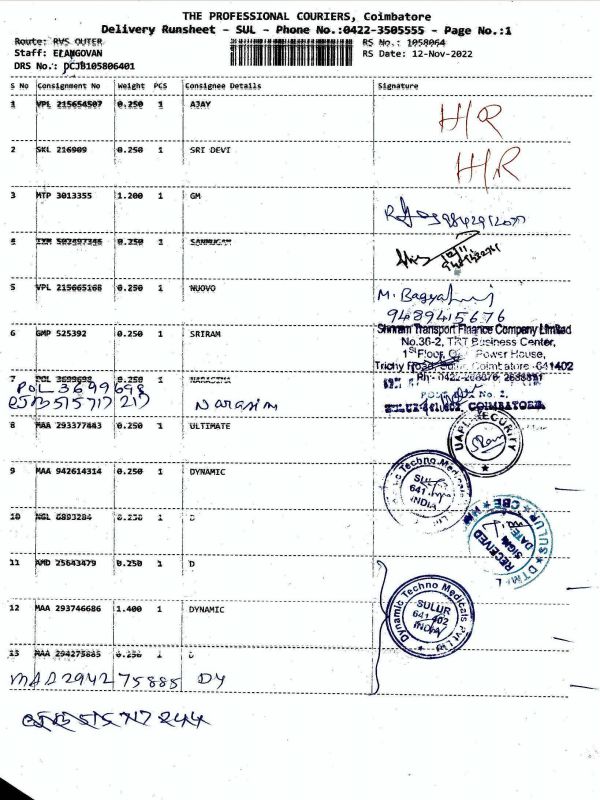 THE PROFESSIONAL COURIERS, Coimbatore
Delivery Runsheet - SUL - Phone No.:0422-3505555 - Page No.:1
Route: RVS OUTER
RS No.: 1058064
Staff: ELANGOVAN
RS Date: 12-Nov-2022
DRS No.: PCJB105806401
S No Consignment No Weight PCS Consignee Details Signature
1 VPL 215654507 0.250 1 AJAY H/R
2 SKL 216909 0.250 1 SRI DEVI H/R
3 MTP 3013355 1.200 1 GM
4 0.250 1 SANMUGAM
5 VPL 215665168 0.250 1 NUOVO
9489415676
6 GMP 525392 0.250 1 SRIRAM
Shriram Transport Finance Company Limited
No.36-2, TRT Business Center,
1st Floor, Power House,
Trichy Road, Sulur, Coimbatore -641402
7 POL 3699698 0.250 1 NARASIMA
POL 3699698
515717217 Narasim
8 MAA 293377443 0.250 1 ULTIMATE
UAPL SECURITY
9 MAA 942614314 0.250 1 DYNAMIC
SULUR
641 402
INDIA
10 NGL 6893284 0.250 1 D
RECEIVED
DATE
SIGN
11 AMD 25643479 0.250 1 D
12 MAA 293746686 1.400 1 DYNAMIC
Dynamic Techno Medicals Pvt Ltd
SULUR
641 402
INDIA
13 MAA 294275885 0.250 1 D
MAA 294275885 DY
515717244